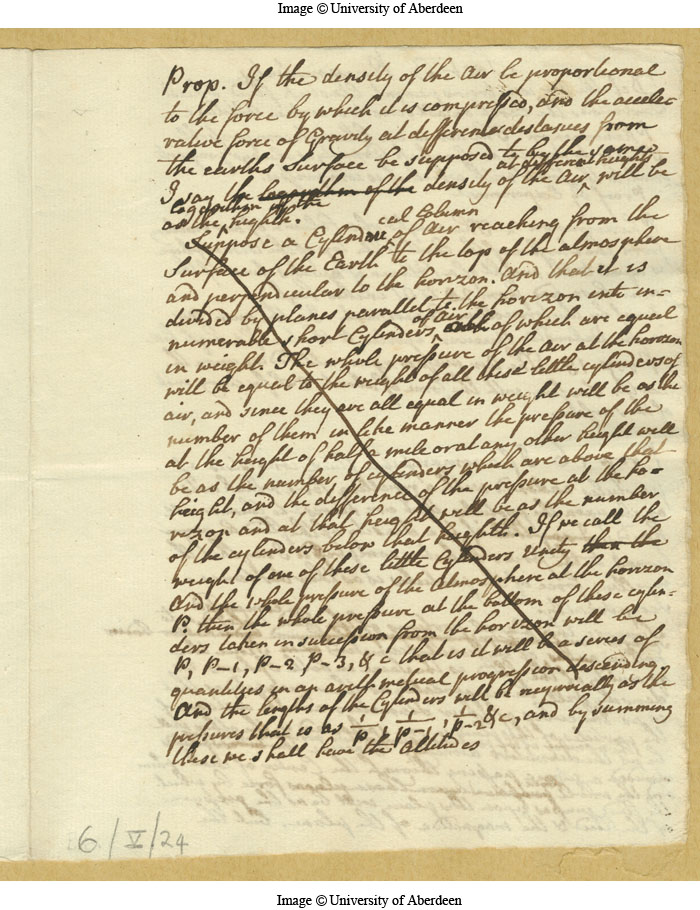 Image © University of Aberdeen
Prop. If the density of the air be proportional
to the force by which it is compressed, and the accele-
rative force of Gravity at different distances from
the earths Surface be supposed to be the same
I say the logarithm of the density of the air at different heights will be
as the logarithm of the heighth.
Suppose a Cylindrical Column of Air reaching from the
Surface of the Earth to the top of the atmosphere
and perpendicular to the horizon. And that it is
divided by planes parallel to the horizon into in-
numerable short Cylinders of air, each of which are equal
in weight. The whole pressure of the air at the horizon
will be equal to the weight of all these little cylinders of
air, and since they are all equal in weight will be as the
number of them in like manner the pressure of the
at the height of half a mile or at any other height will
be as the number of cylinders which are above that
height, and the difference of the pressure at the ho-
rizon and at that height will be as the number
of the cylinders below that heighth. If we call the
weight of one of these little Cylinders Unity then the
And the whole pressure of the Atmosphere at the horizon
P. then the whole pressure at the bottom of these cylin-
ders taken in succession from the horizon will be
P, P-1, P-2, P-3, & c that is it will be a series of
quantities in an arithmetical progression descending
And the lengths of the Cylinders will be reciprocally as the
pressures that is as 1/P, 1/P-1, 1/P-2 &c, and by summing
these we shall have the Altitudes
6/V/24
Image © University of Aberdeen